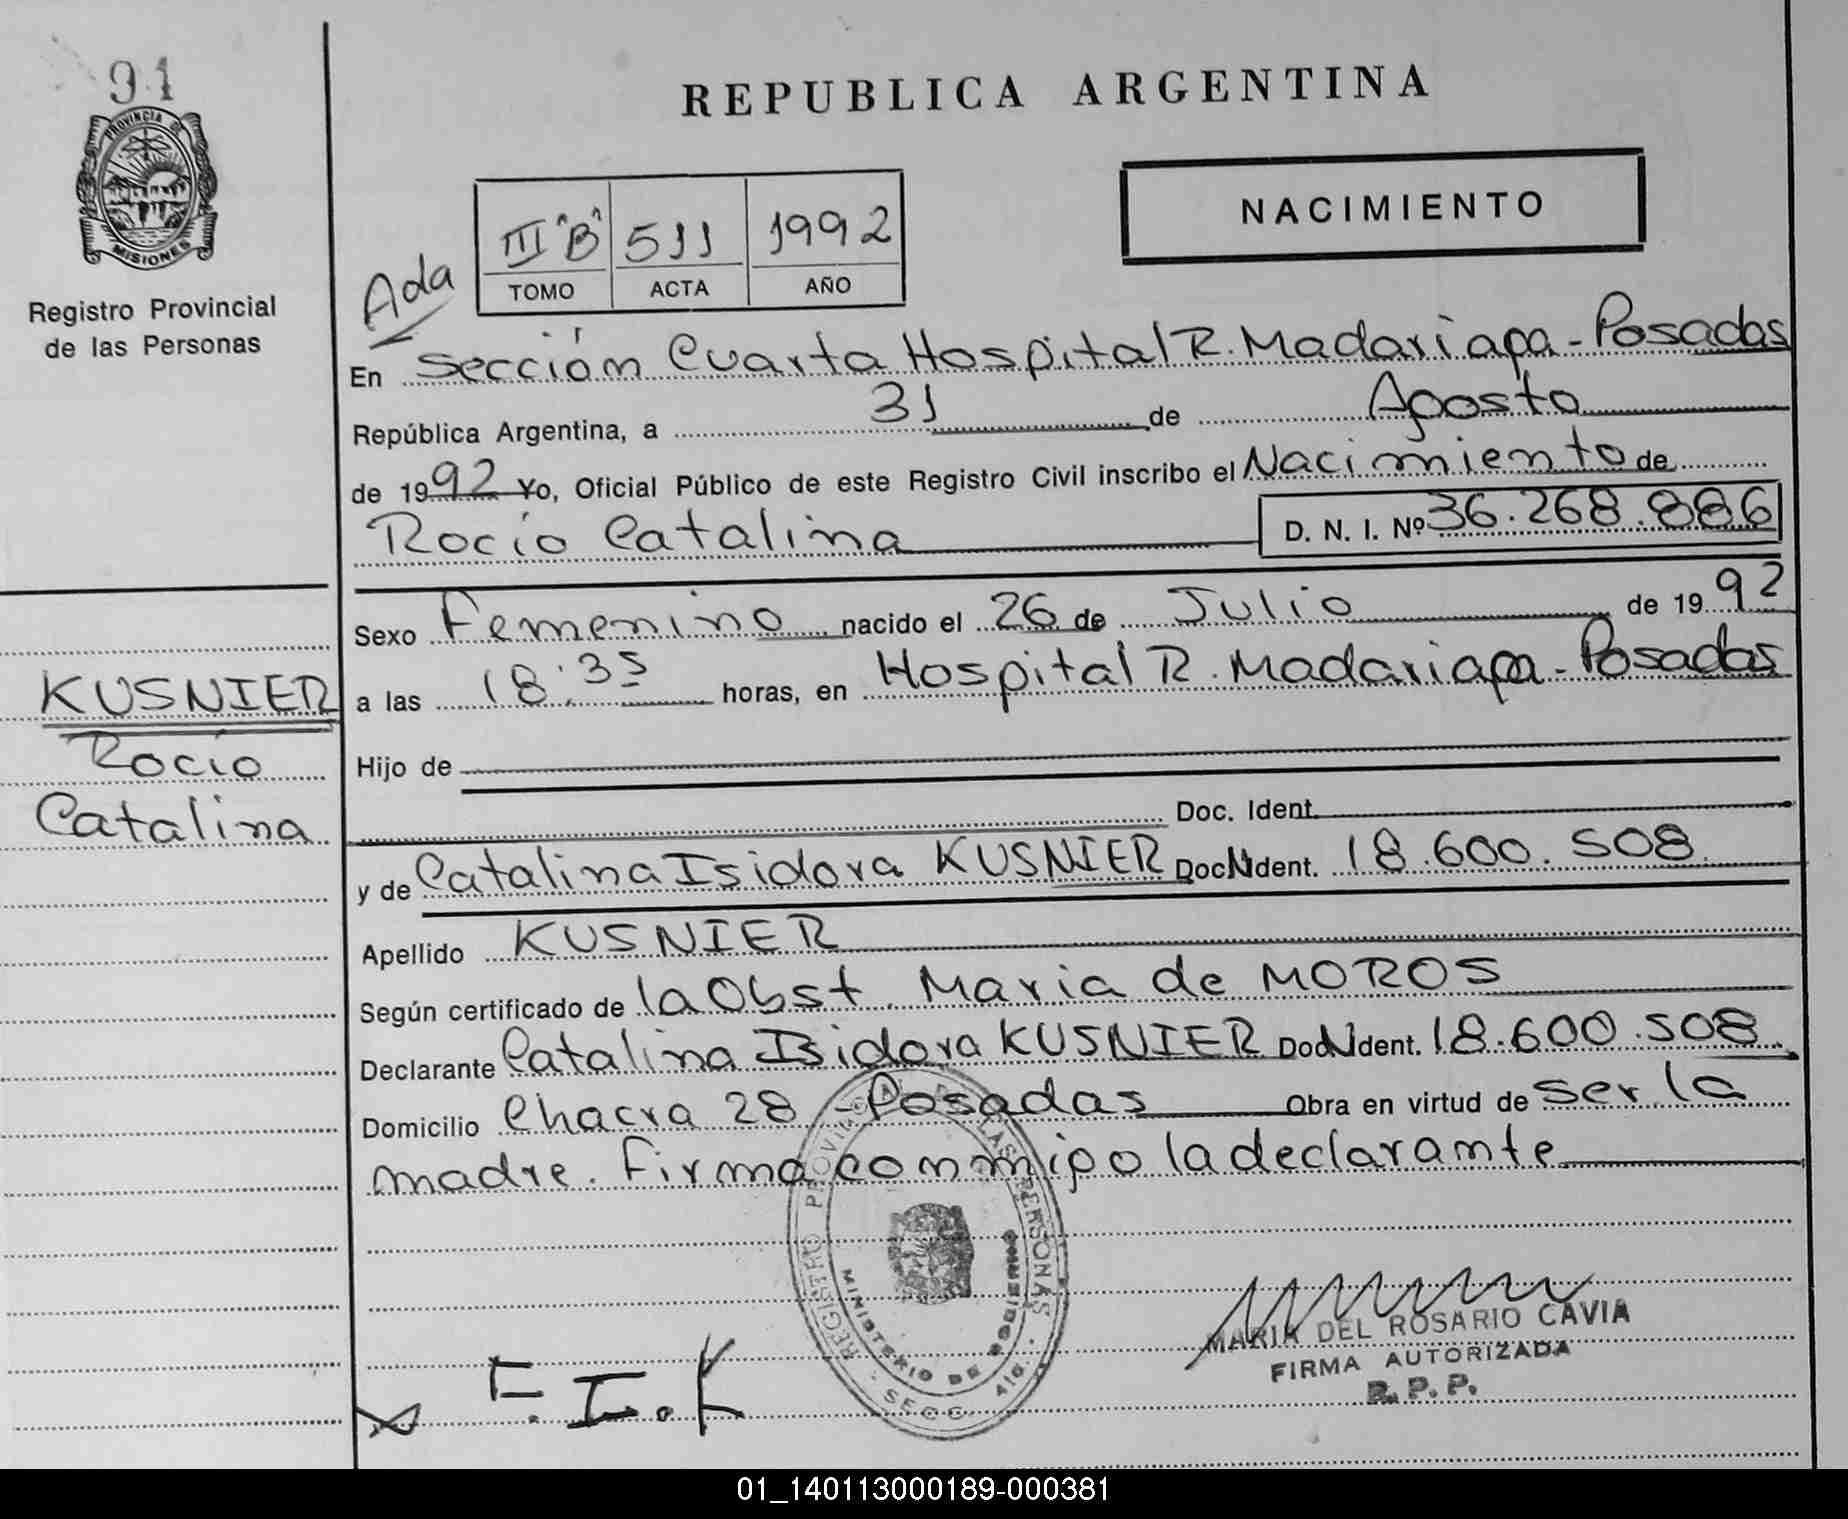 91
PROVINCIA DE
MISIONES
Registro Provincial
de las Personas
REPUBLICA ARGENTINA
NACIMIENTO
III "B" 511 1992
TOMO ACTA AÑO
Ada
En Sección Cuarta Hospital R. Madariaga - Posadas
República Argentina, a 31 de Agosto
de 1992 Yo, Oficial Público de este Registro Civil inscribo el Nacimiento de
Rocío Catalina D. N. I. Nº 36.268.886
Sexo Femenino nacido el 26 de Julio de 1992
a las 18:35 horas, en Hospital R. Madariaga - Posadas
KUSNIER
Rocío
Catalina
Hijo de
Doc. Ident.
y de Catalina Isidora KUSNIER Doc N Ident. 18.600.508
Apellido KUSNIER
Según certificado de la Obst. Maria de MOROS
Declarante Catalina Isidora KUSNIER Doc N Ident. 18.600.508
Domicilio Chacra 28 - Posadas Obra en virtud de ser la
madre. Firma conmigo la declarante
REGISTRO PROVINCIAL DE LAS PERSONAS
MINISTERIO DE GOBIERNO
SECC. 4ta.
MARIA DEL ROSARIO CAVIA
FIRMA AUTORIZADA
R. P. P.
01_140113000189-000381